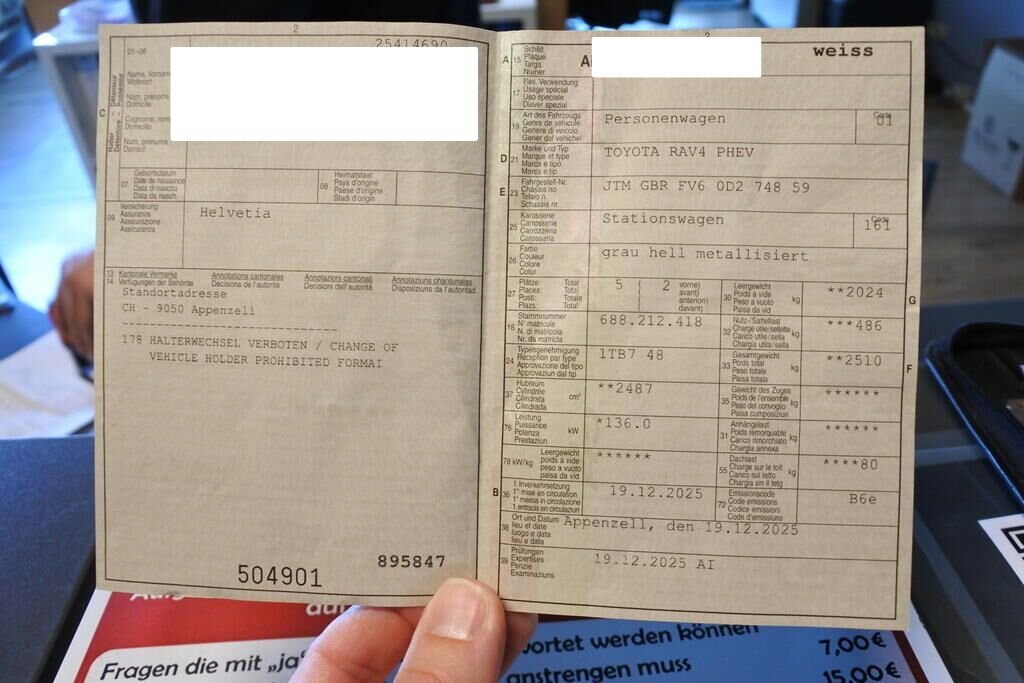 2
25414690
01-06
Name, Vornam
Wohnort
Nom, prénoms
Domicile
Cognome, no
Domicilio
Num, prenums
Domicil
C
Halter - Détenteur
Detentore - Possessur
07
Geburtsdatum
Date de naissance
Data di nascita
Data da nasch.
08
Heimatstaat
Pays d'origine
Paese d'origine
Stadi d'origin
09
Versicherung
Assurance
Assicurazione
Assicuranza
Helvetia
13
14
Kantonale Vermerke
Verfügungen der Behörde
Annotations cantonales
Décisions de l'autorité
Annotazioni cantonali
Decisioni dell'autorità
Annotaziuns chantunalas
Disposiziuns da l'autoritad
Standortadresse
CH - 9050 Appenzell
--------------------------
178 HALTERWECHSEL VERBOTEN / CHANGE OF
VEHICLE HOLDER PROHIBITED FORMAI
504901
895847
3
A 15
Schild
Plaque
Targa
Numer
A
weiss
17
Bes. Verwendung
Usage spécial
Uso speciale
Diever spezial
19
Art des Fahrzeugs
Genre de véhicule
Genere di veicolo
Gener dal vehichel
Personenwagen
Code
01
D 21
Marke und Typ
Marque et type
Marca e tipo
Marca e tip
TOYOTA RAV4 PHEV
E 23
Fahrgestell-Nr.
Châssis no
Telaio n.
Schassis nr.
JTM GBR FV6 0D2 748 59
25
Karosserie
Carrosserie
Carrozzeria
Carossaria
Stationswagen
Code
161
26
Farbe
Couleur
Colore
Colur
grau hell metallisiert
27
Plätze: Total
Places: Total
Posti: Totale
Plazs: Total
5
2
vorne)
avant)
anteriori)
davant)
30
Leergewicht
Poids à vide
Peso a vuoto
Paisa vid
kg
**2024
G
18
Stammnummer
N° matricule
N. di matricola
Nr. da matricla
688.212.418
32
Nutz-/Sattellast
Charge utile/sellette
Carico utile/sella
Chargia utila/sella
kg
***486
24
Typengenehmigung
Réception par type
Approvazione del tipo
Approvaziun dal tip
1TB7 48
33
Gesamtgewicht
Poids total
Peso totale
Paisa totala
kg
**2510
F
37
Hubraum
Cylindrée
Cilindrata
Cilindrada
cm³
**2487
35
Gewicht des Zuges
Poids de l'ensemble
Peso del convoglio
Paisa cumposiziun
kg
******
76
Leistung
Puissance
Potenza
Prestaziun
kW
*136.0
31
Anhängelast
Poids remorquable
Carico rimorchiato
Chargia annexa
kg
******
78 kW/kg
Leergewicht
poids à vide
peso a vuoto
paisa da vid
******
55
Dachlast
Charge sur le toit
Carico sul tetto
Chargia sin il tetg
kg
****80
B 36
1. Inverkehrsetzung
1re mise en circulation
1a messa in circolazione
1. entrada en circulaziun
19.12.2025
72
Emissionscode
Code émissions
Codice emissioni
Code d'emissiuns
B6e
38
Ort und Datum
lieu et date
luogo e data
lieu e data
Appenzell, den 19.12.2025
39
Prüfungen
Expertises
Perizie
Examinaziuns
19.12.2025 AI
Fragen die mit „ja
wortet werden können
7,00€
anstrengen muss
15,00€